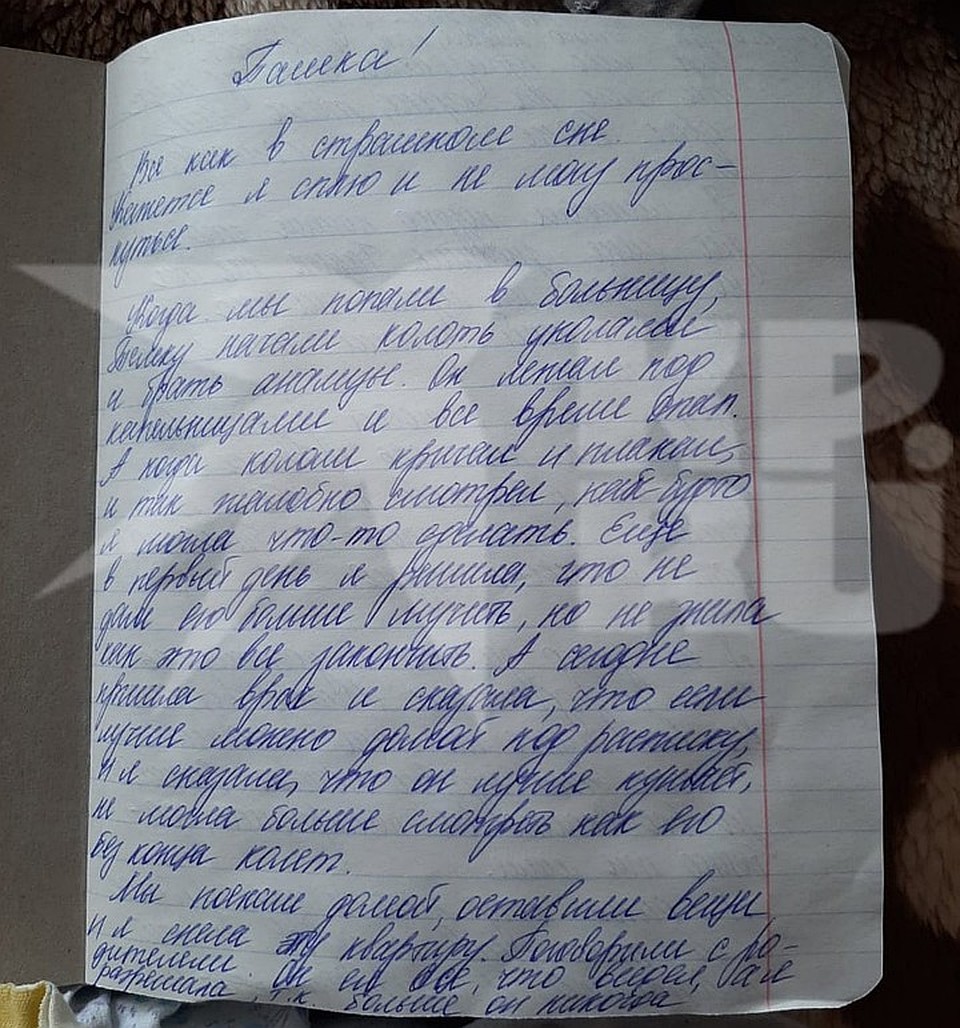 Пашка!
Все как в страшном сне.
Кажется я сплю и не могу прос-
нуться.
Когда мы попали в больницу,
начали колоть уколами
и брать анализы. Он лежал под
капельницами и все время спал.
А когда кололи кричал и плакал,
и так жалобно смотрел, как-будто
я могла что-то сделать. Еще
в первый день я решила, что не
дам его больше мучить, но не знала
как это все закончить. А сегодня
пришла врач и сказала, что если
лучше можно домой под расписку,
и я сказала, что он лучше кушает,
не могла больше смотреть как его
без конца колет.
Мы поехали домой, оставили вещи
и я сняла эту квартиру. Поговорили с ро-
дителями. Он ел все, что видел, а я
разрешала, т.к. больше он никогда